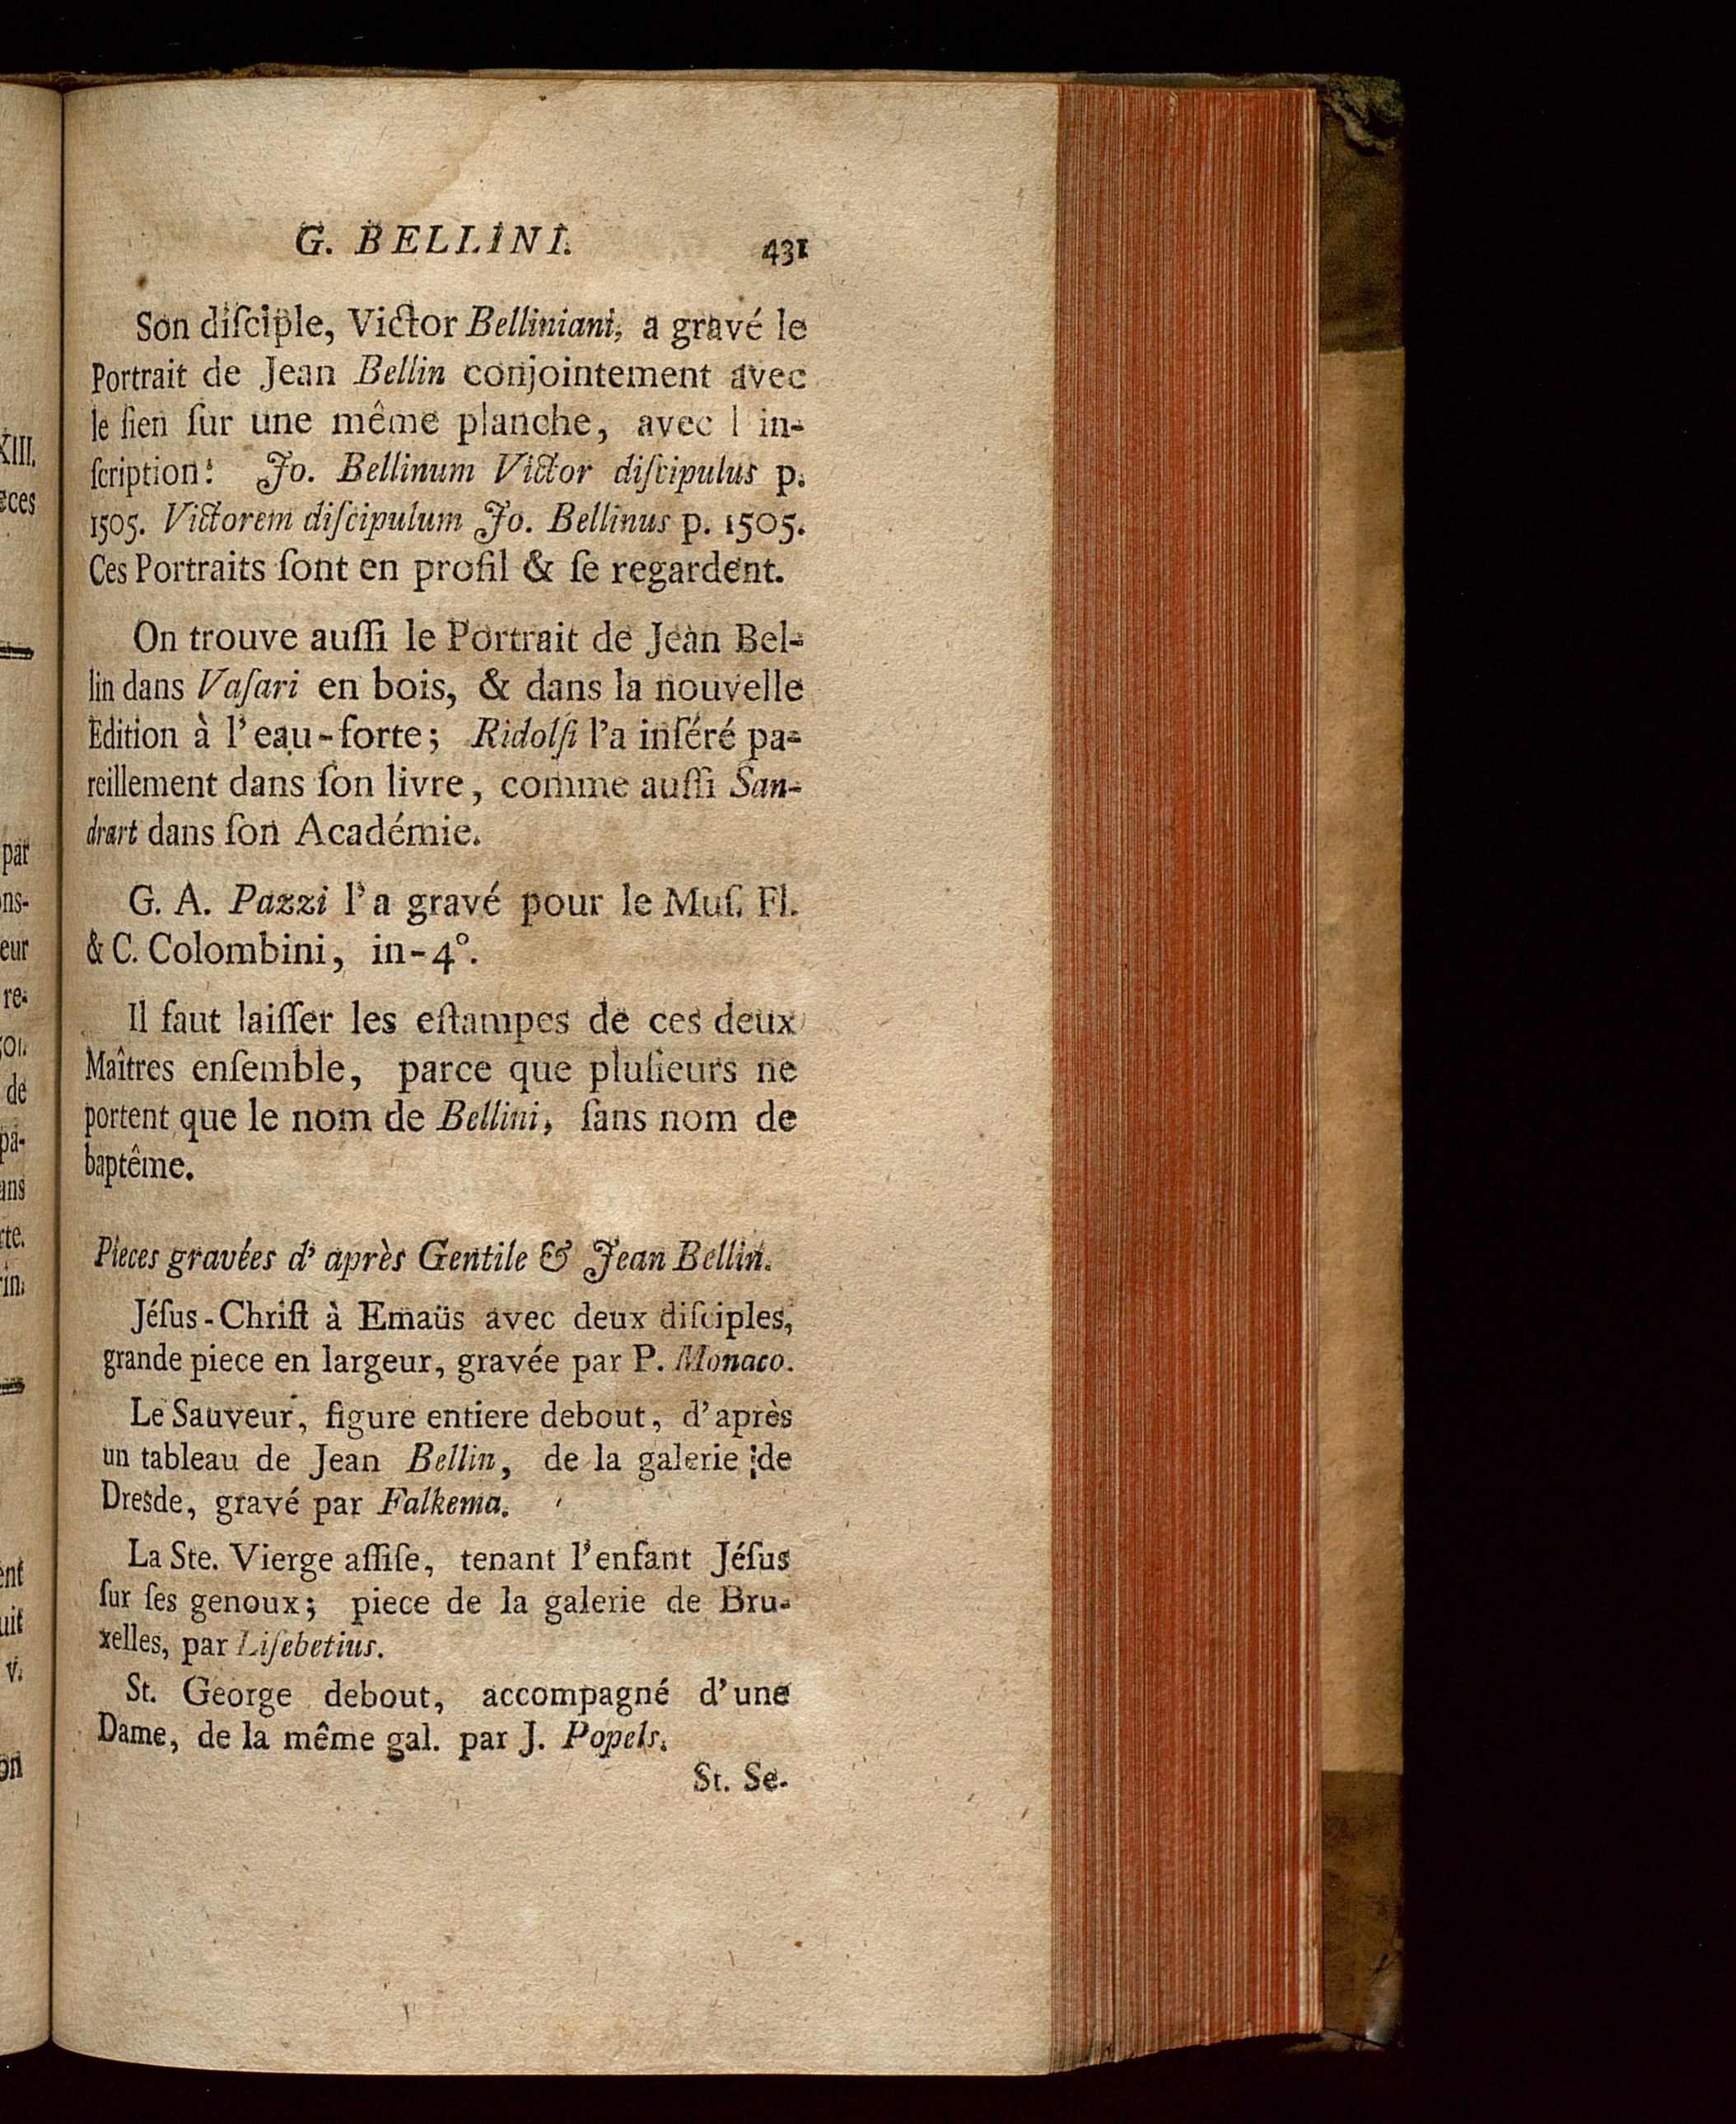 G. BELLINI. 431
Son diſciple, Victor Belliniani, a gravé le
Portrait de Jean Bellin conjointement avec
le ſien ſur une même planche, avec l in-
ſcription: Jo. Bellinum Victor diſcipulus p.
1505. Victorem diſcipulum Jo. Bellinus p. 1505.
Ces Portraits ſont en profil & ſe regardent.
On trouve auſſi le Portrait de Jean Bel-
lin dans Vaſari en bois, & dans la nouvelle
Edition à l'eau-forte; Ridolfi l'a inſéré pa-
reillement dans ſon livre, comme auſſi San-
drart dans ſon Académie.
G. A. Pazzi l'a gravé pour le Muſ. Fl.
& C. Colombini, in-4°.
Il faut laiſſer les eſtampes de ces deux
Maîtres enſemble, parce que pluſieurs ne
portent que le nom de Bellini, ſans nom de
baptême.
Pieces gravées d'après Gentile & Jean Bellin.
Jéſus-Chriſt à Emaüs avec deux diſciples,
grande piece en largeur, gravée par P. Monaco.
Le Sauveur, figure entiere debout, d'après
un tableau de Jean Bellin, de la galerie de
Dresde, gravé par Falkema.
La Ste. Vierge aſſiſe, tenant l'enfant Jéſus
ſur ſes genoux; piece de la galerie de Bru-
xelles, par Liſebetius.
St. George debout, accompagné d'une
Dame, de la même gal. par J. Popels.
St. Se-